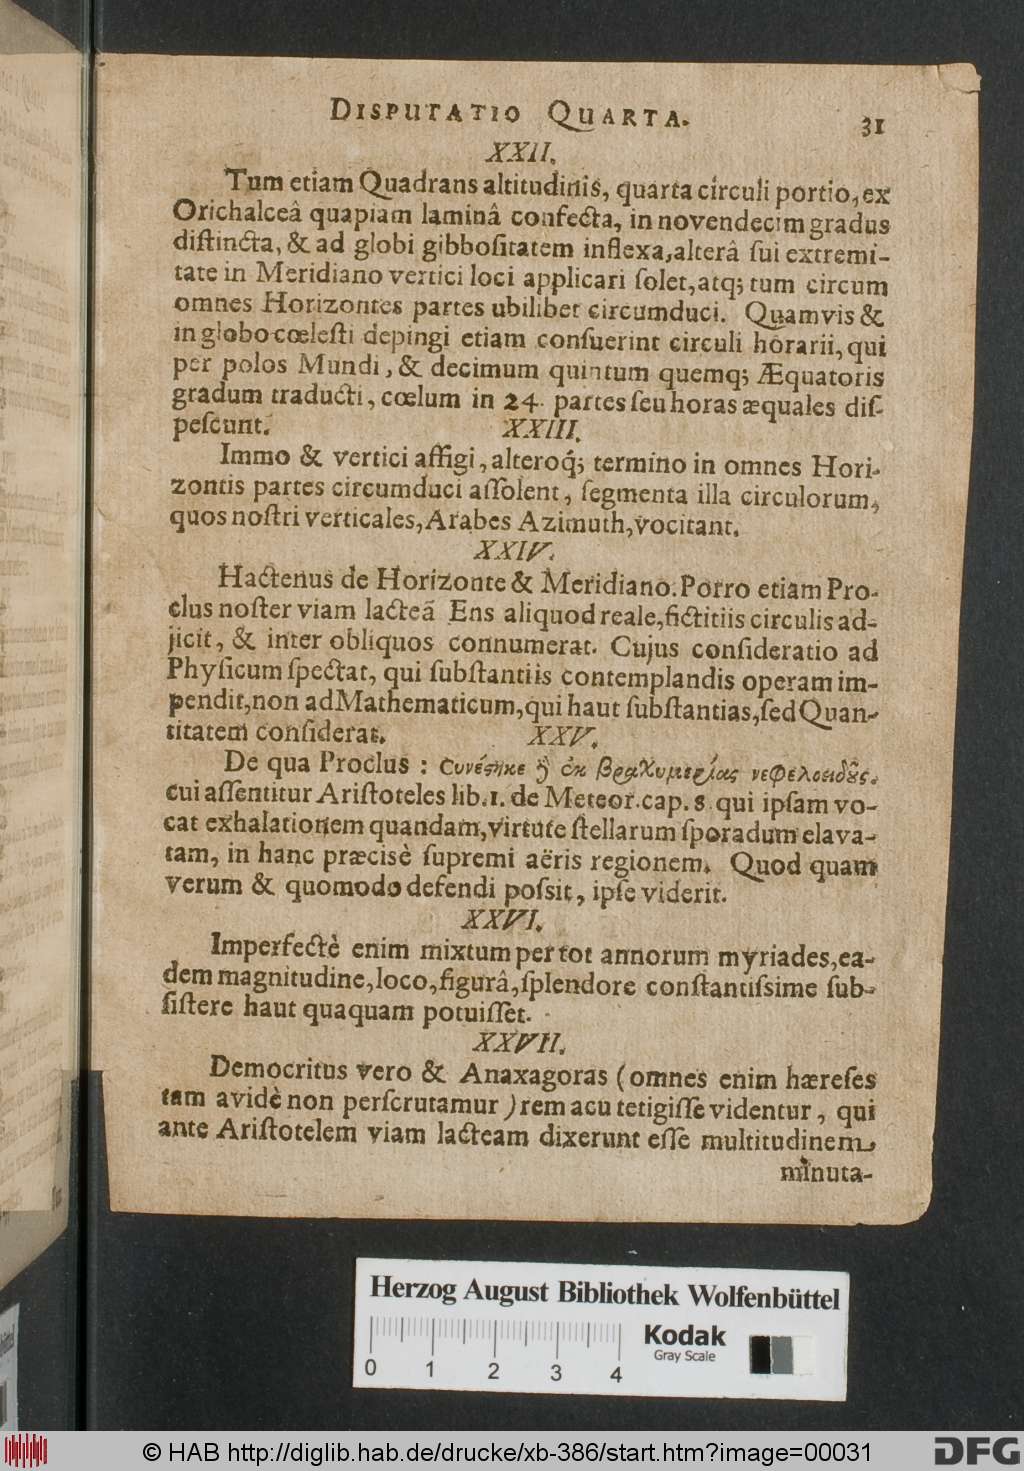 DISPUTATIO QUARTA. 31
XXII.
Tum etiam Quadrans altitudinis, quarta circuli portio, ex
Orichalceâ quapiam laminâ confecta, in novendecim gradus
distincta, & ad globi gibbositatem inflexa, alterâ sui extremi-
tate in Meridiano vertici loci applicari solet, atq; tum circum
omnes Horizontes partes ubilibet circumduci. Quamvis &
in globo cœlesti depingi etiam consuerint circuli horarii, qui
per polos Mundi, & decimum quintum quemq; Æquatoris
gradum traducti, cœlum in 24. partes seu horas æquales dis-
pescunt.
XXIII.
Immo & vertici affigi, alteroq́; termino in omnes Hori-
zontis partes circumduci assolent, segmenta illa circulorum,
quos nostri verticales, Arabes Azimuth, vocitant.
XXIV.
Hactenus de Horizonte & Meridiano. Porro etiam Pro-
clus noster viam lacteã Ens aliquod reale, fictitiis circulis ad-
jicit, & inter obliquos connumerat. Cujus consideratio ad
Physicum spectat, qui substantiis contemplandis operam im-
pendit, non ad Mathematicum, qui haut substantias, sed Quan-
titatem considerat.
XXV.
De qua Proclus : συνέστηκε ἢ ἐκ βραχυμερίας νεφελοειδοῦς.
cui assentitur Aristoteles lib. 1. de Meteor. cap. 8. qui ipsam vo-
cat exhalationem quandam, virtute stellarum sporadum elava-
tam, in hanc præcisè supremi aëris regionem. Quod quam
verum & quomodo defendi possit, ipse viderit.
XXVI.
Imperfectè enim mixtum per tot annorum myriades, ea-
dem magnitudine, loco, figurâ, splendore constantissime sub-
sistere haut quaquam potuisset.
XXVII.
Democritus vero & Anaxagoras (omnes enim hæreses
tam avidè non perscrutamur) rem acu tetigisse videntur, qui
ante Aristotelem viam lacteam dixerunt esse multitudinem
minuta-
Herzog August Bibliothek Wolfenbüttel
Kodak
Gray Scale
0 1 2 3 4
© HAB http://diglib.hab.de/drucke/xb-386/start.htm?image=00031
DFG